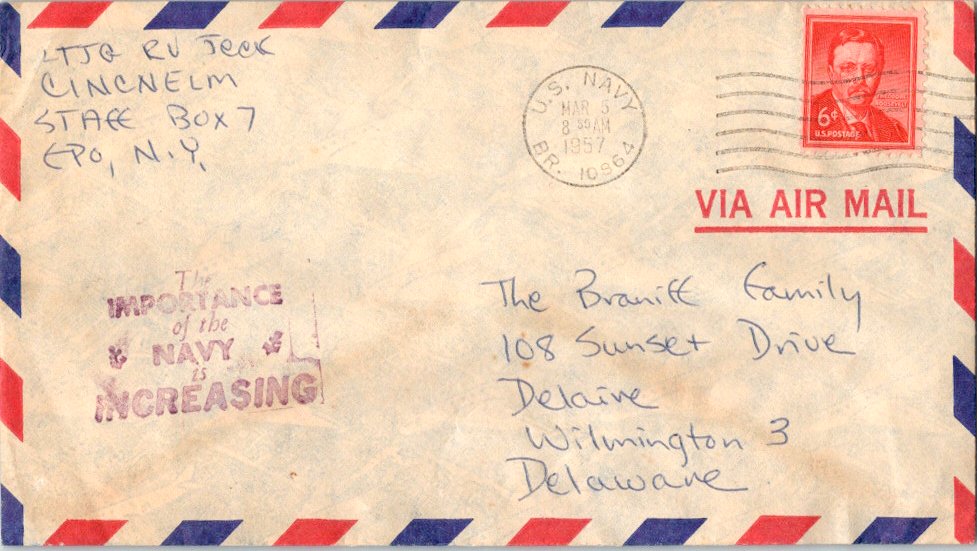 LTJG RV Jeck
CINCNELM
STAFF BOX 7
FPO, N.Y.
U.S. NAVY
MAR 5
8 30 AM
1957
BR. 10964
6¢
U.S. POSTAGE
VIA AIR MAIL
The
IMPORTANCE
of the
NAVY
is
INCREASING
The Braniff Family
108 Sunset Drive
Delaire
Wilmington 3
Delaware